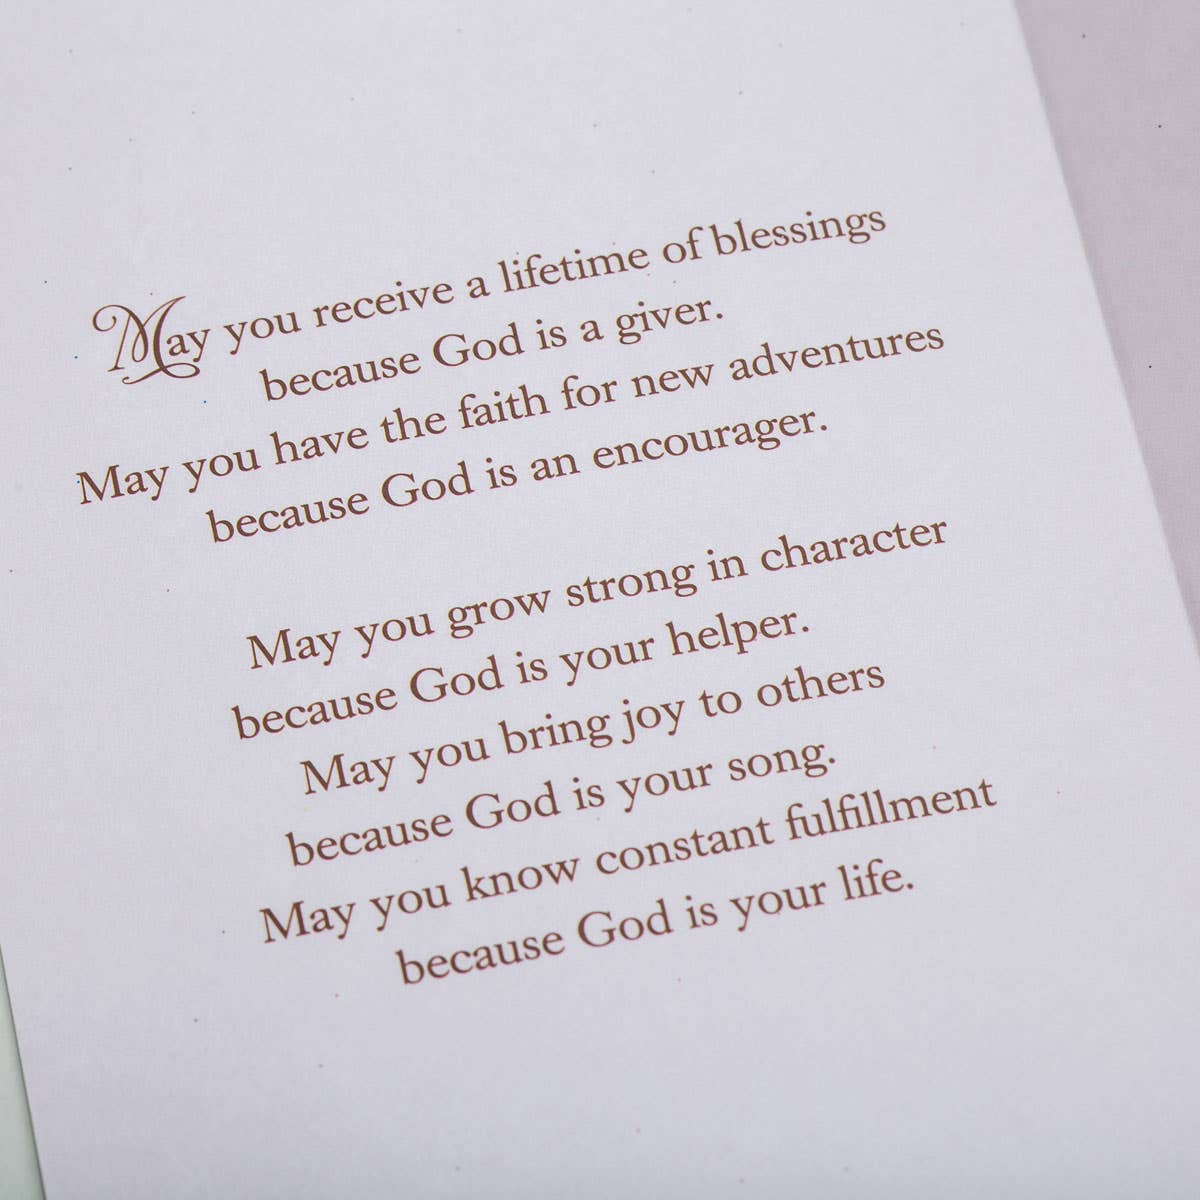 May you receive a lifetime of blessings
because God is a giver.
May you have the faith for new adventures
because God is an encourager.
May you grow strong in character
because God is your helper.
May you bring joy to others
because God is your song.
May you know constant fulfillment
because God is your life.